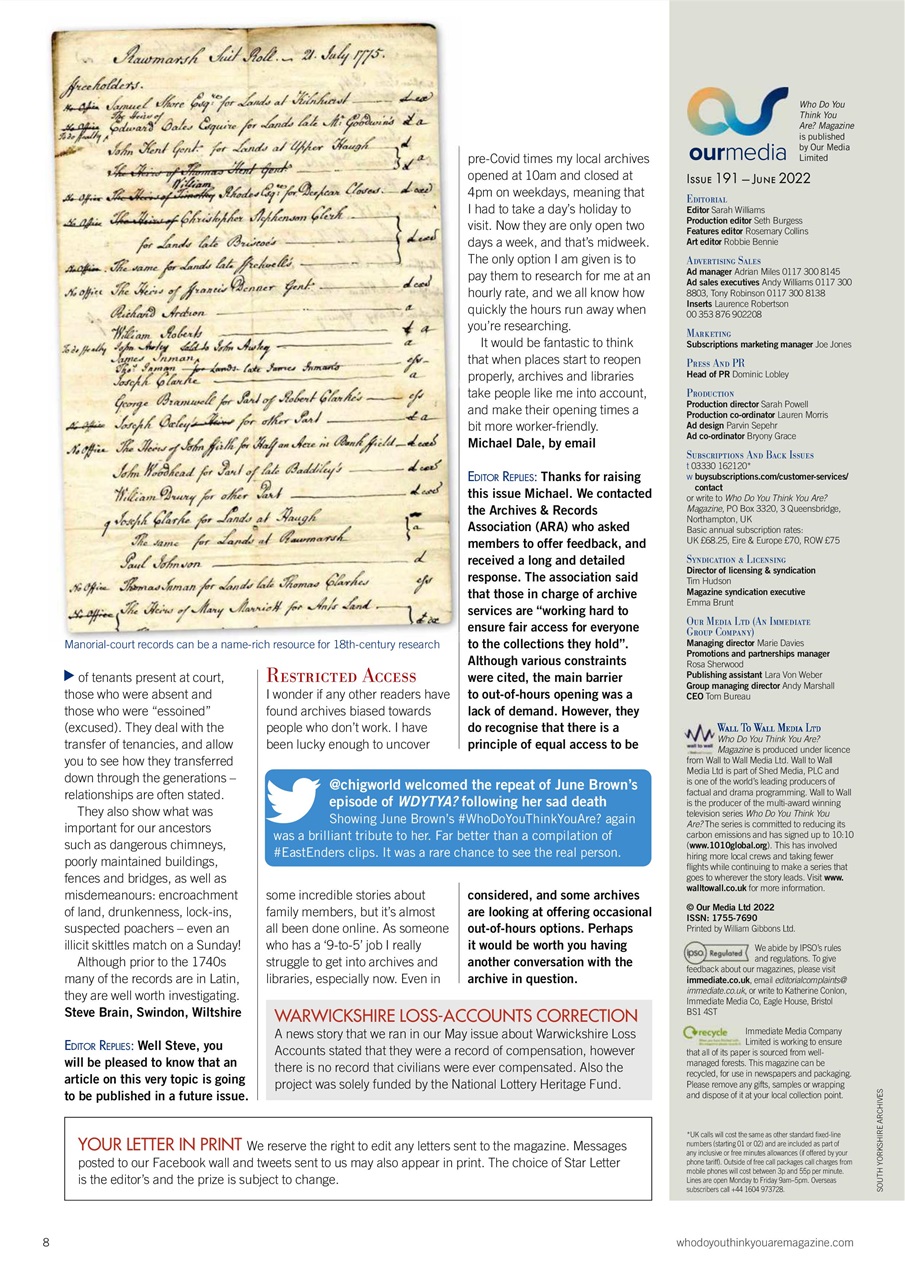 Rawmarsh Suit Roll. 21. July 1775.
ffreeholders.
No Office Samuel Shore Esqre for Lands at Kilnhurst
The Heirs of
No Office Edward Oates Esquire for Lands late Mr Goodwin's
John Kent Gent. for Lands at Upper Haugh
The Heirs of Thomas Kent Gent
William
No Office The Heirs of Timothy Rhodes Esqr for Deepcar Closes.
No Office The Heirs of Christopher Stephenson Clerk
for Lands late Briscoe's
No Office The same for Lands late
No Office The Heirs of ffrancis Gent.
Richard
William Roberts
James Inman
for Lands late James Inman's
Joseph Clarke
George Bramwell for Part of Robert Clarke's
No Office Joseph for other Part
No Office The Heirs of John ffirth for Half an Acre in Bank ffield
John Woodhead for Part of late Baddiley's
William Drury for other Part
Joseph Clarke for Lands at Haugh
The same for Lands at Rawmarsh
Paul Johnson
No Office Thomas Inman for Lands late Thomas Clarkes
No Office The Heirs of Mary Marriott for Land
Manorial-court records can be a name-rich resource for 18th-century research
of tenants present at court,
those who were absent and
those who were “essoined”
(excused). They deal with the
transfer of tenancies, and allow
you to see how they transferred
down through the generations –
relationships are often stated.
They also show what was
important for our ancestors
such as dangerous chimneys,
poorly maintained buildings,
fences and bridges, as well as
misdemeanours: encroachment
of land, drunkenness, lock-ins,
suspected poachers – even an
illicit skittles match on a Sunday!
Although prior to the 1740s
many of the records are in Latin,
they are well worth investigating.
Steve Brain, Swindon, Wiltshire
Editor Replies: Well Steve, you
will be pleased to know that an
article on this very topic is going
to be published in a future issue.
Restricted Access
I wonder if any other readers have
found archives biased towards
people who don't work. I have
been lucky enough to uncover
some incredible stories about
family members, but it's almost
all been done online. As someone
who has a ‘9-to-5’ job I really
struggle to get into archives and
libraries, especially now. Even in
pre-Covid times my local archives
opened at 10am and closed at
4pm on weekdays, meaning that
I had to take a day's holiday to
visit. Now they are only open two
days a week, and that's midweek.
The only option I am given is to
pay them to research for me at an
hourly rate, and we all know how
quickly the hours run away when
you're researching.
It would be fantastic to think
that when places start to reopen
properly, archives and libraries
take people like me into account,
and make their opening times a
bit more worker-friendly.
Michael Dale, by email
Editor Replies: Thanks for raising
this issue Michael. We contacted
the Archives & Records
Association (ARA) who asked
members to offer feedback, and
received a long and detailed
response. The association said
that those in charge of archive
services are “working hard to
ensure fair access for everyone
to the collections they hold”.
Although various constraints
were cited, the main barrier
to out-of-hours opening was a
lack of demand. However, they
do recognise that there is a
principle of equal access to be
considered, and some archives
are looking at offering occasional
out-of-hours options. Perhaps
it would be worth you having
another conversation with the
archive in question.
@chigworld welcomed the repeat of June Brown's
episode of WDYTYA? following her sad death
Showing June Brown's #WhoDoYouThinkYouAre? again
was a brilliant tribute to her. Far better than a compilation of
#EastEnders clips. It was a rare chance to see the real person.
WARWICKSHIRE LOSS-ACCOUNTS CORRECTION
A news story that we ran in our May issue about Warwickshire Loss
Accounts stated that they were a record of compensation, however
there is no record that civilians were ever compensated. Also the
project was solely funded by the National Lottery Heritage Fund.
YOUR LETTER IN PRINT We reserve the right to edit any letters sent to the magazine. Messages
posted to our Facebook wall and tweets sent to us may also appear in print. The choice of Star Letter
is the editor's and the prize is subject to change.
ourmedia
Who Do You
Think You
Are? Magazine
is published
by Our Media
Limited
Issue 191 – June 2022
Editorial
Editor Sarah Williams
Production editor Seth Burgess
Features editor Rosemary Collins
Art editor Robbie Bennie
Advertising Sales
Ad manager Adrian Miles 0117 300 8145
Ad sales executives Andy Williams 0117 300
8803, Tony Robinson 0117 300 8138
Inserts Laurence Robertson
00 353 876 902208
Marketing
Subscriptions marketing manager Joe Jones
Press And PR
Head of PR Dominic Lobley
Production
Production director Sarah Powell
Production co-ordinator Lauren Morris
Ad design Parvin Sepehr
Ad co-ordinator Bryony Grace
Subscriptions And Back Issues
t 03330 162120*
w buysubscriptions.com/customer-services/
contact
or write to Who Do You Think You Are?
Magazine, PO Box 3320, 3 Queensbridge,
Northampton, UK
Basic annual subscription rates:
UK £68.25, Eire & Europe £70, ROW £75
Syndication & Licensing
Director of licensing & syndication
Tim Hudson
Magazine syndication executive
Emma Brunt
Our Media Ltd (An Immediate
Group Company)
Managing director Marie Davies
Promotions and partnerships manager
Rosa Sherwood
Publishing assistant Lara Von Weber
Group managing director Andy Marshall
CEO Tom Bureau
wall to wall
Wall To Wall Media Ltd
Who Do You Think You Are?
Magazine is produced under licence
from Wall to Wall Media Ltd. Wall to Wall
Media Ltd is part of Shed Media, PLC and
is one of the world's leading producers of
factual and drama programming. Wall to Wall
is the producer of the multi-award winning
television series Who Do You Think You
Are? The series is committed to reducing its
carbon emissions and has signed up to 10:10
(www.1010global.org). This has involved
hiring more local crews and taking fewer
flights while continuing to make a series that
goes to wherever the story leads. Visit www.
walltowall.co.uk for more information.
© Our Media Ltd 2022
ISSN: 1755-7690
Printed by William Gibbons Ltd.
ipso. Regulated
We abide by IPSO's rules
and regulations. To give
feedback about our magazines, please visit
immediate.co.uk, email editorialcomplaints@
immediate.co.uk, or write to Katherine Conlon,
Immediate Media Co, Eagle House, Bristol
BS1 4ST
recycle
Immediate Media Company
Limited is working to ensure
that all of its paper is sourced from well-
managed forests. This magazine can be
recycled, for use in newspapers and packaging.
Please remove any gifts, samples or wrapping
and dispose of it at your local collection point.
*UK calls will cost the same as other standard fixed-line
numbers (starting 01 or 02) and are included as part of
any inclusive or free minutes allowances (if offered by your
phone tariff). Outside of free call packages call charges from
mobile phones will cost between 3p and 55p per minute.
Lines are open Monday to Friday 9am–5pm. Overseas
subscribers call +44 1604 973728.
SOUTH YORKSHIRE ARCHIVES
8
whodoyouthinkyouaremagazine.com